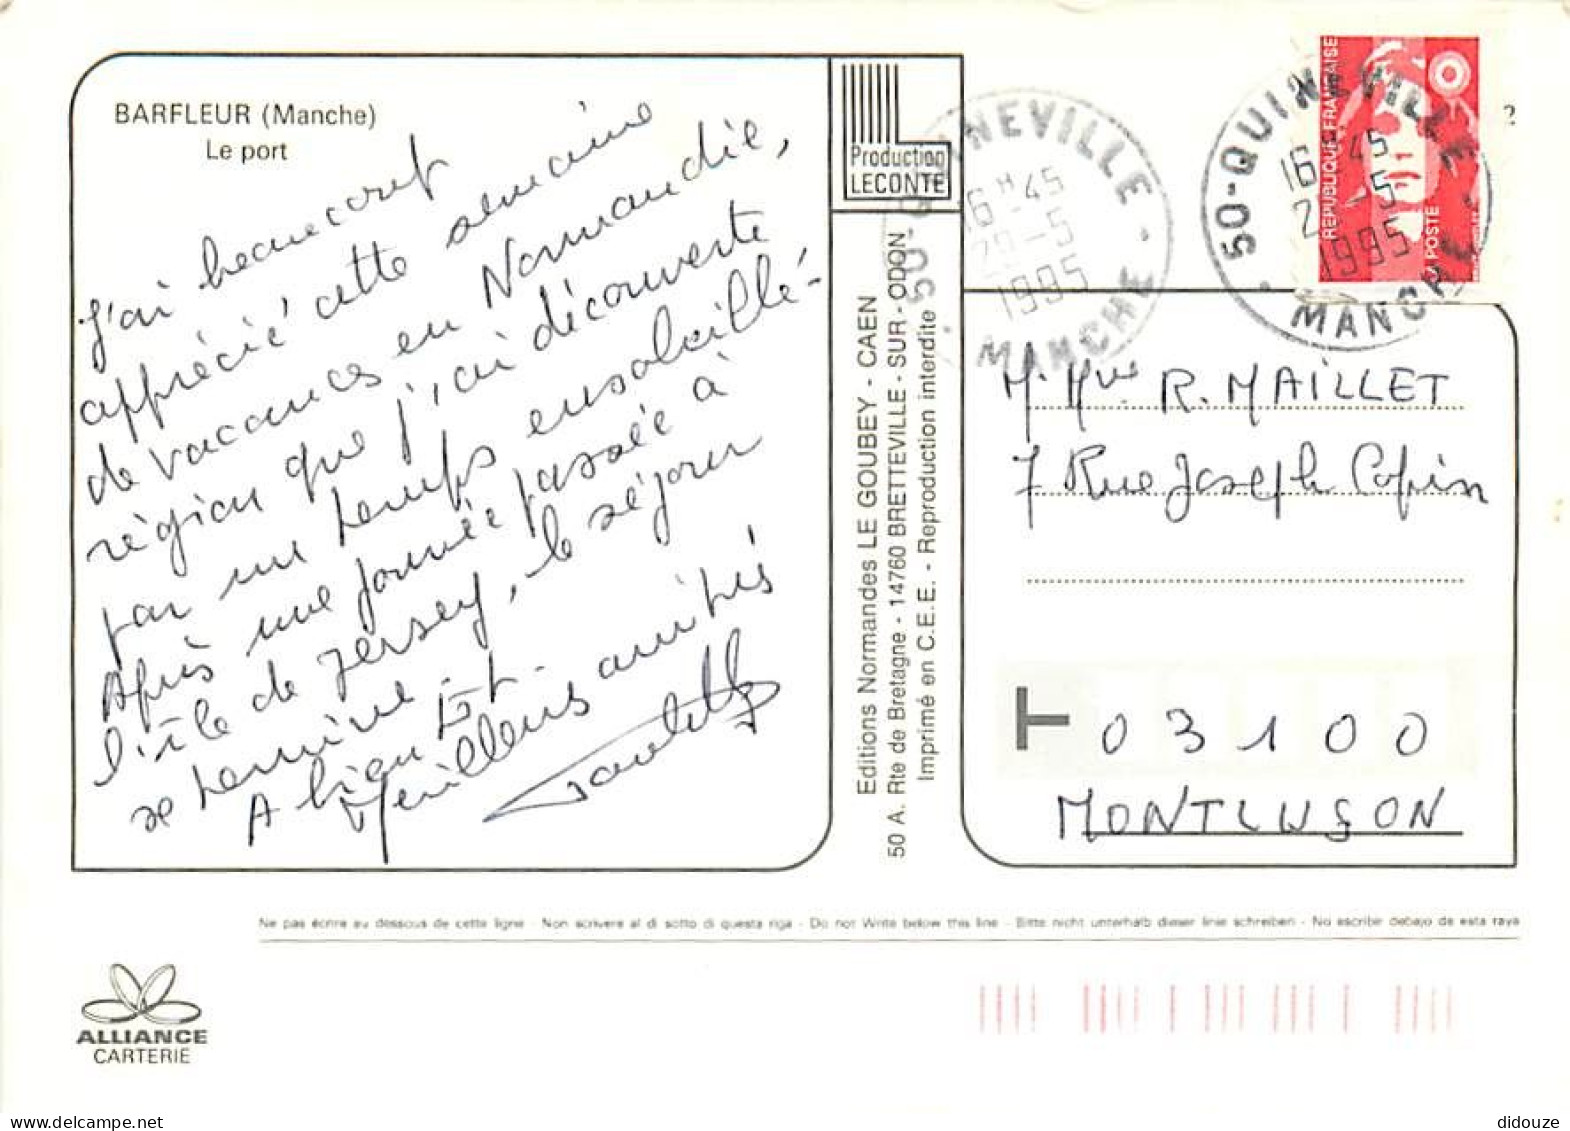 BARFLEUR (Manche)
Le port
J'ai beaucoup
apprécié cette semaine
de vacances en Normandie,
région que j'ai découverte
par un temps ensoleillé.
Après une journée passée à
l'île de Jersey, le séjour
se termine.
A bientôt.
Meilleures amitiés
Production
LECONTE
Editions Normandes LE GOUBEY - CAEN
50 A. Rte de Bretagne - 14760 BRETTEVILLE - SUR - ODON
Imprimé en C.E.E. - Reproduction interdite
50-QUINEVILLE
16H45
29-5
1995
MANCHE
50-QUINEVILLE
16H45
2-5
1995
MANCHE
REPUBLIQUE FRANÇAISE
LA POSTE
?
M. Mme R. MAILLET
7 Rue Joseph Copin
T 03100
MONTLUÇON
Ne pas écrire au dessous de cette ligne - Non scrivere al di sotto di questa riga - Do not Write below this line - Bitte nicht unterhalb dieser linie schreiben - No escribir debajo de esta raya
ALLIANCE
CARTERIE
didouze